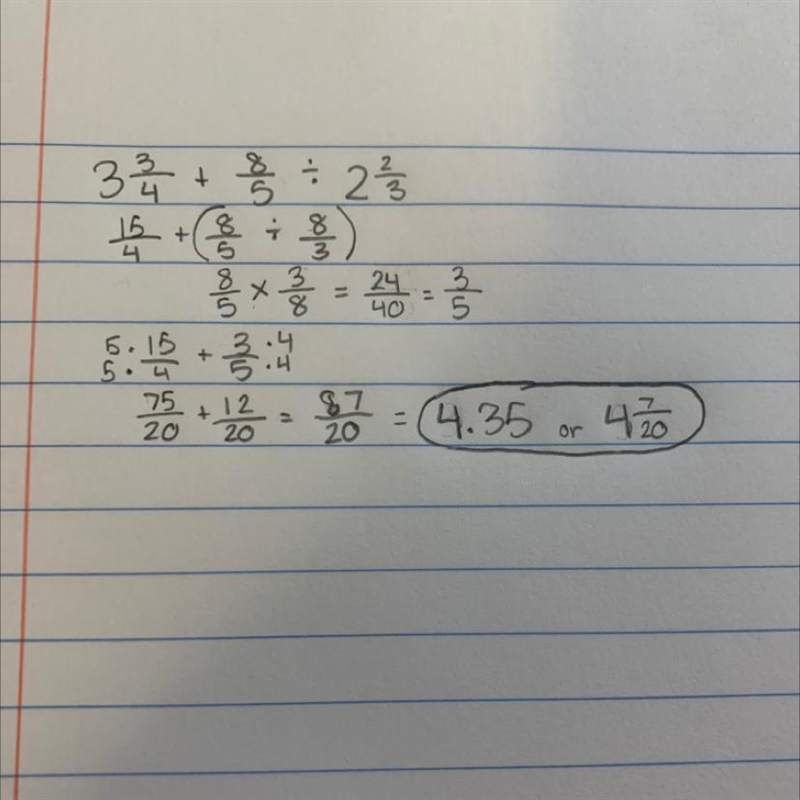 3 3/4 + 8/5 ÷ 2 2/3
15/4 + (8/5 ÷ 8/3)
8/5 × 3/8 = 24/40 = 3/5
5 · 15 / 5 · 4 + 3 · 4 / 5 · 4
75/20 + 12/20 = 87/20 = 4.35 or 4 7/20